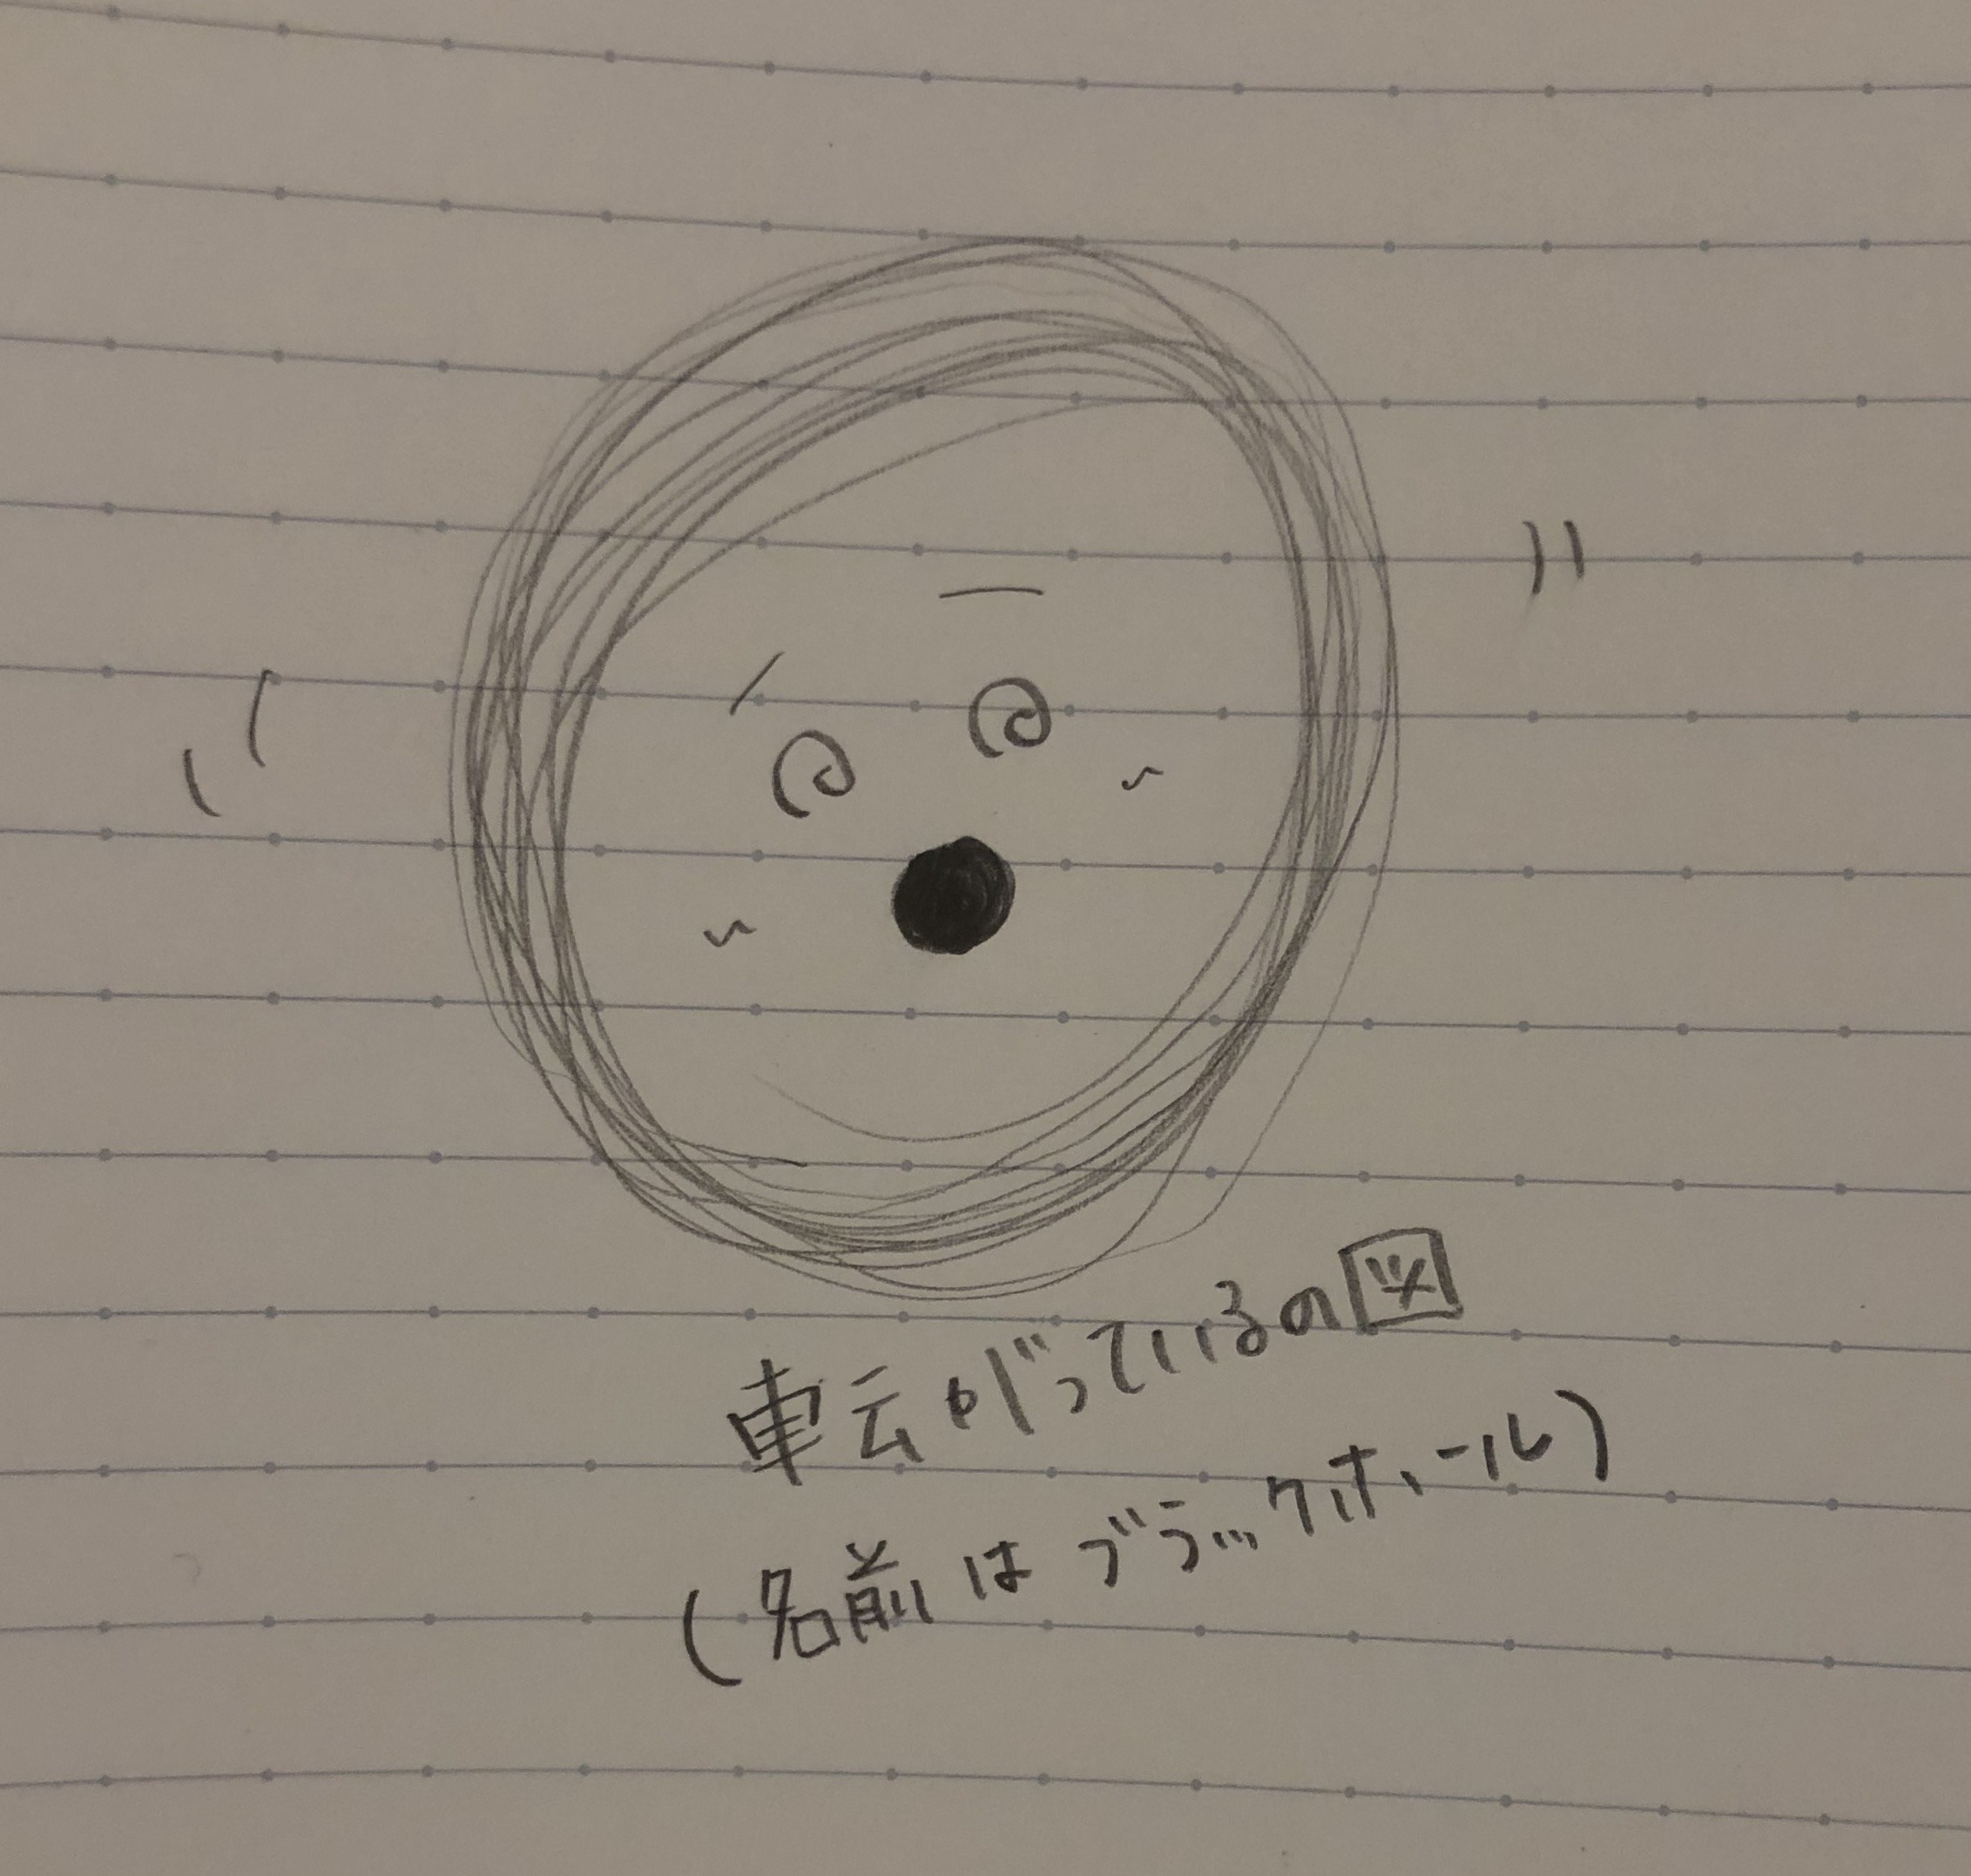 転がっているの図
(名前はブラックホール)